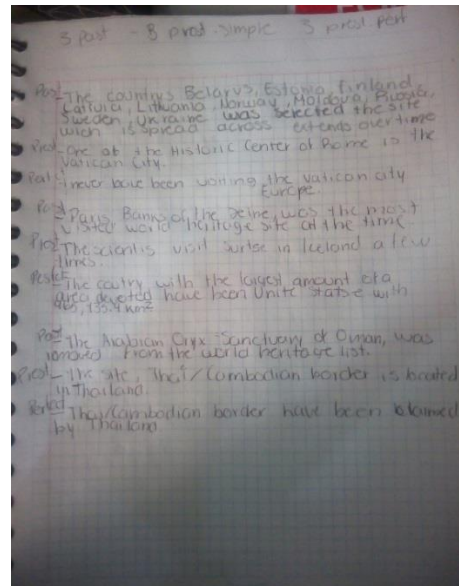 3 past - 3 prest. simple 3 prest perf
Past - The countrys Belarus, Estonia, Finland
Latvia, Lithuania, Norway, Moldova, Russia,
Sweden, Ukraine was selected the site
wich is spread across extends over time
Prest - One of the Historic Center of Rome is the
Vatican City.
Perf - I never have been the vatican city
Europe.
Past - Paris, Banks of the Seine, was the most
visited world heritage site at the time
Prest - The scientis visit in Iceland a few
times...
Perfect - The coutry with the largest amount of a
area devoted have been Unite with
Past - The Arabian Oryx Sanctuary of Oman, was
removed from the world heritage list.
Prest - The site, Thai/Cambodian border is located
in Thailand.
Perfect - Thai/Cambodian border have been
by Thailand